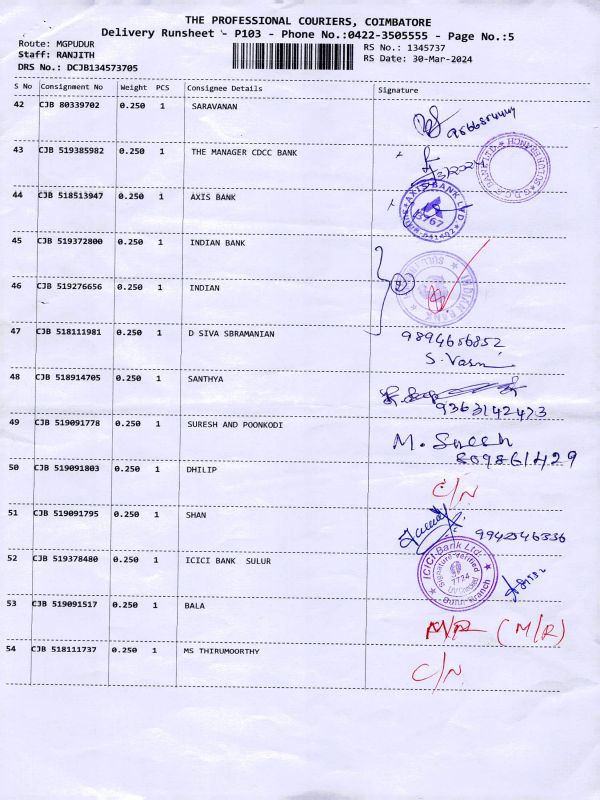 THE PROFESSIONAL COURIERS, COIMBATORE
Delivery Runsheet - P103 - Phone No.:0422-3505555 - Page No.:5
Route: MGPUDUR
RS No.: 1345737
Staff: RANJITH
RS Date: 30-Mar-2024
DRS No.: DCJB134573705
S No Consignment No Weight PCS Consignee Details Signature
42 CJB 80339702 0.250 1 SARAVANAN
43 CJB 519385982 0.250 1 THE MANAGER CDCC BANK
44 CJB 518513947 0.250 1 AXIS BANK
AXIS BANK LTD
45 CJB 519372800 0.250 1 INDIAN BANK
46 CJB 519276656 0.250 1 INDIAN
INDIAN BANK
47 CJB 518111981 0.250 1 D SIVA SBRAMANIAN 9894656852
48 CJB 518914705 0.250 1 SANTHYA
9363142473
49 CJB 519091778 0.250 1 SURESH AND POONKODI
809861429
50 CJB 519091803 0.250 1 DHILIP C/N
51 CJB 519091795 0.250 1 SHAN
9942546336
52 CJB 519378480 0.250 1 ICICI BANK SULUR
ICICI Bank Ltd.
Signature Verified
53 CJB 519091517 0.250 1 BALA (M/R)
54 CJB 518111737 0.250 1 MS THIRUMOORTHY C/N